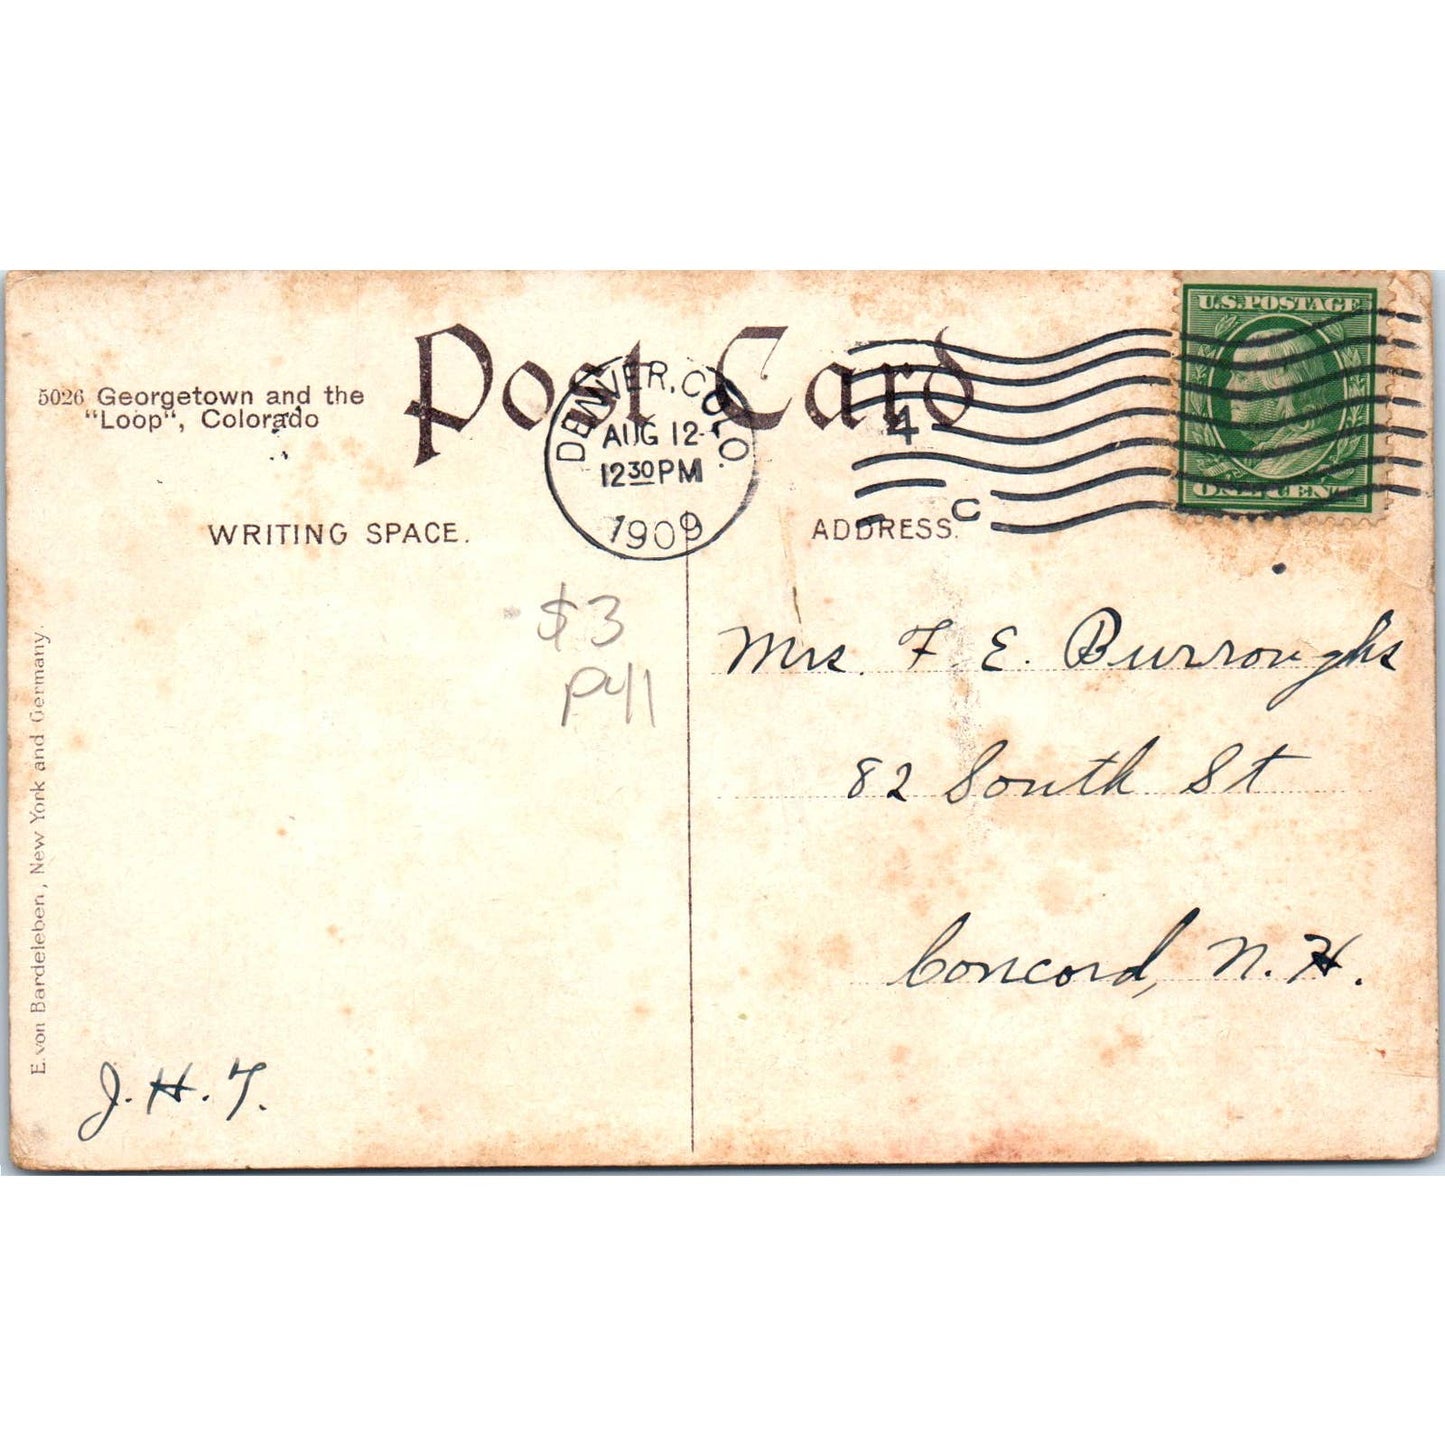 U.S. POSTAGE
ONE CENT
Post Card
5026 Georgetown and the
"Loop", Colorado
DENVER, COLO.
AUG 12
12 30 PM
1909
4
C
WRITING SPACE.
ADDRESS.
$3
P41
Mrs. F. E. Burroughs
82 South St
Concord, N. H.
J. H. T.
E. von Bardeleben, New York and Germany.